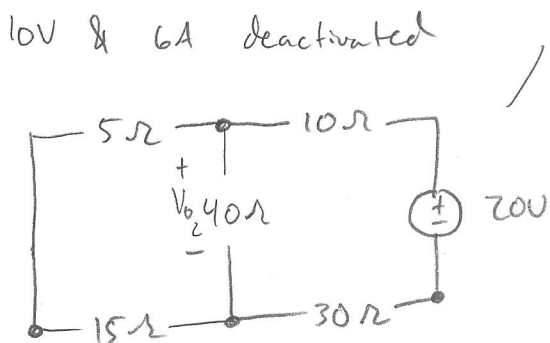 10V & 6A deactivated
5Ω
10Ω
+
Vo2
40Ω
-
+
-
20V
15Ω
30Ω